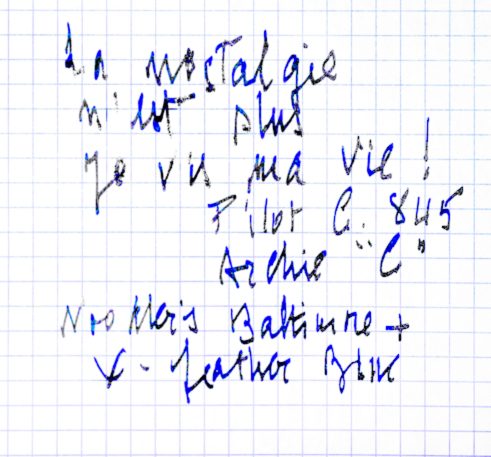 La nostalgie
n'est plus
Je vis ma vie !
Pilot C. 845
Archie "C"
Noodler's Baltimore +
X-feather Blue